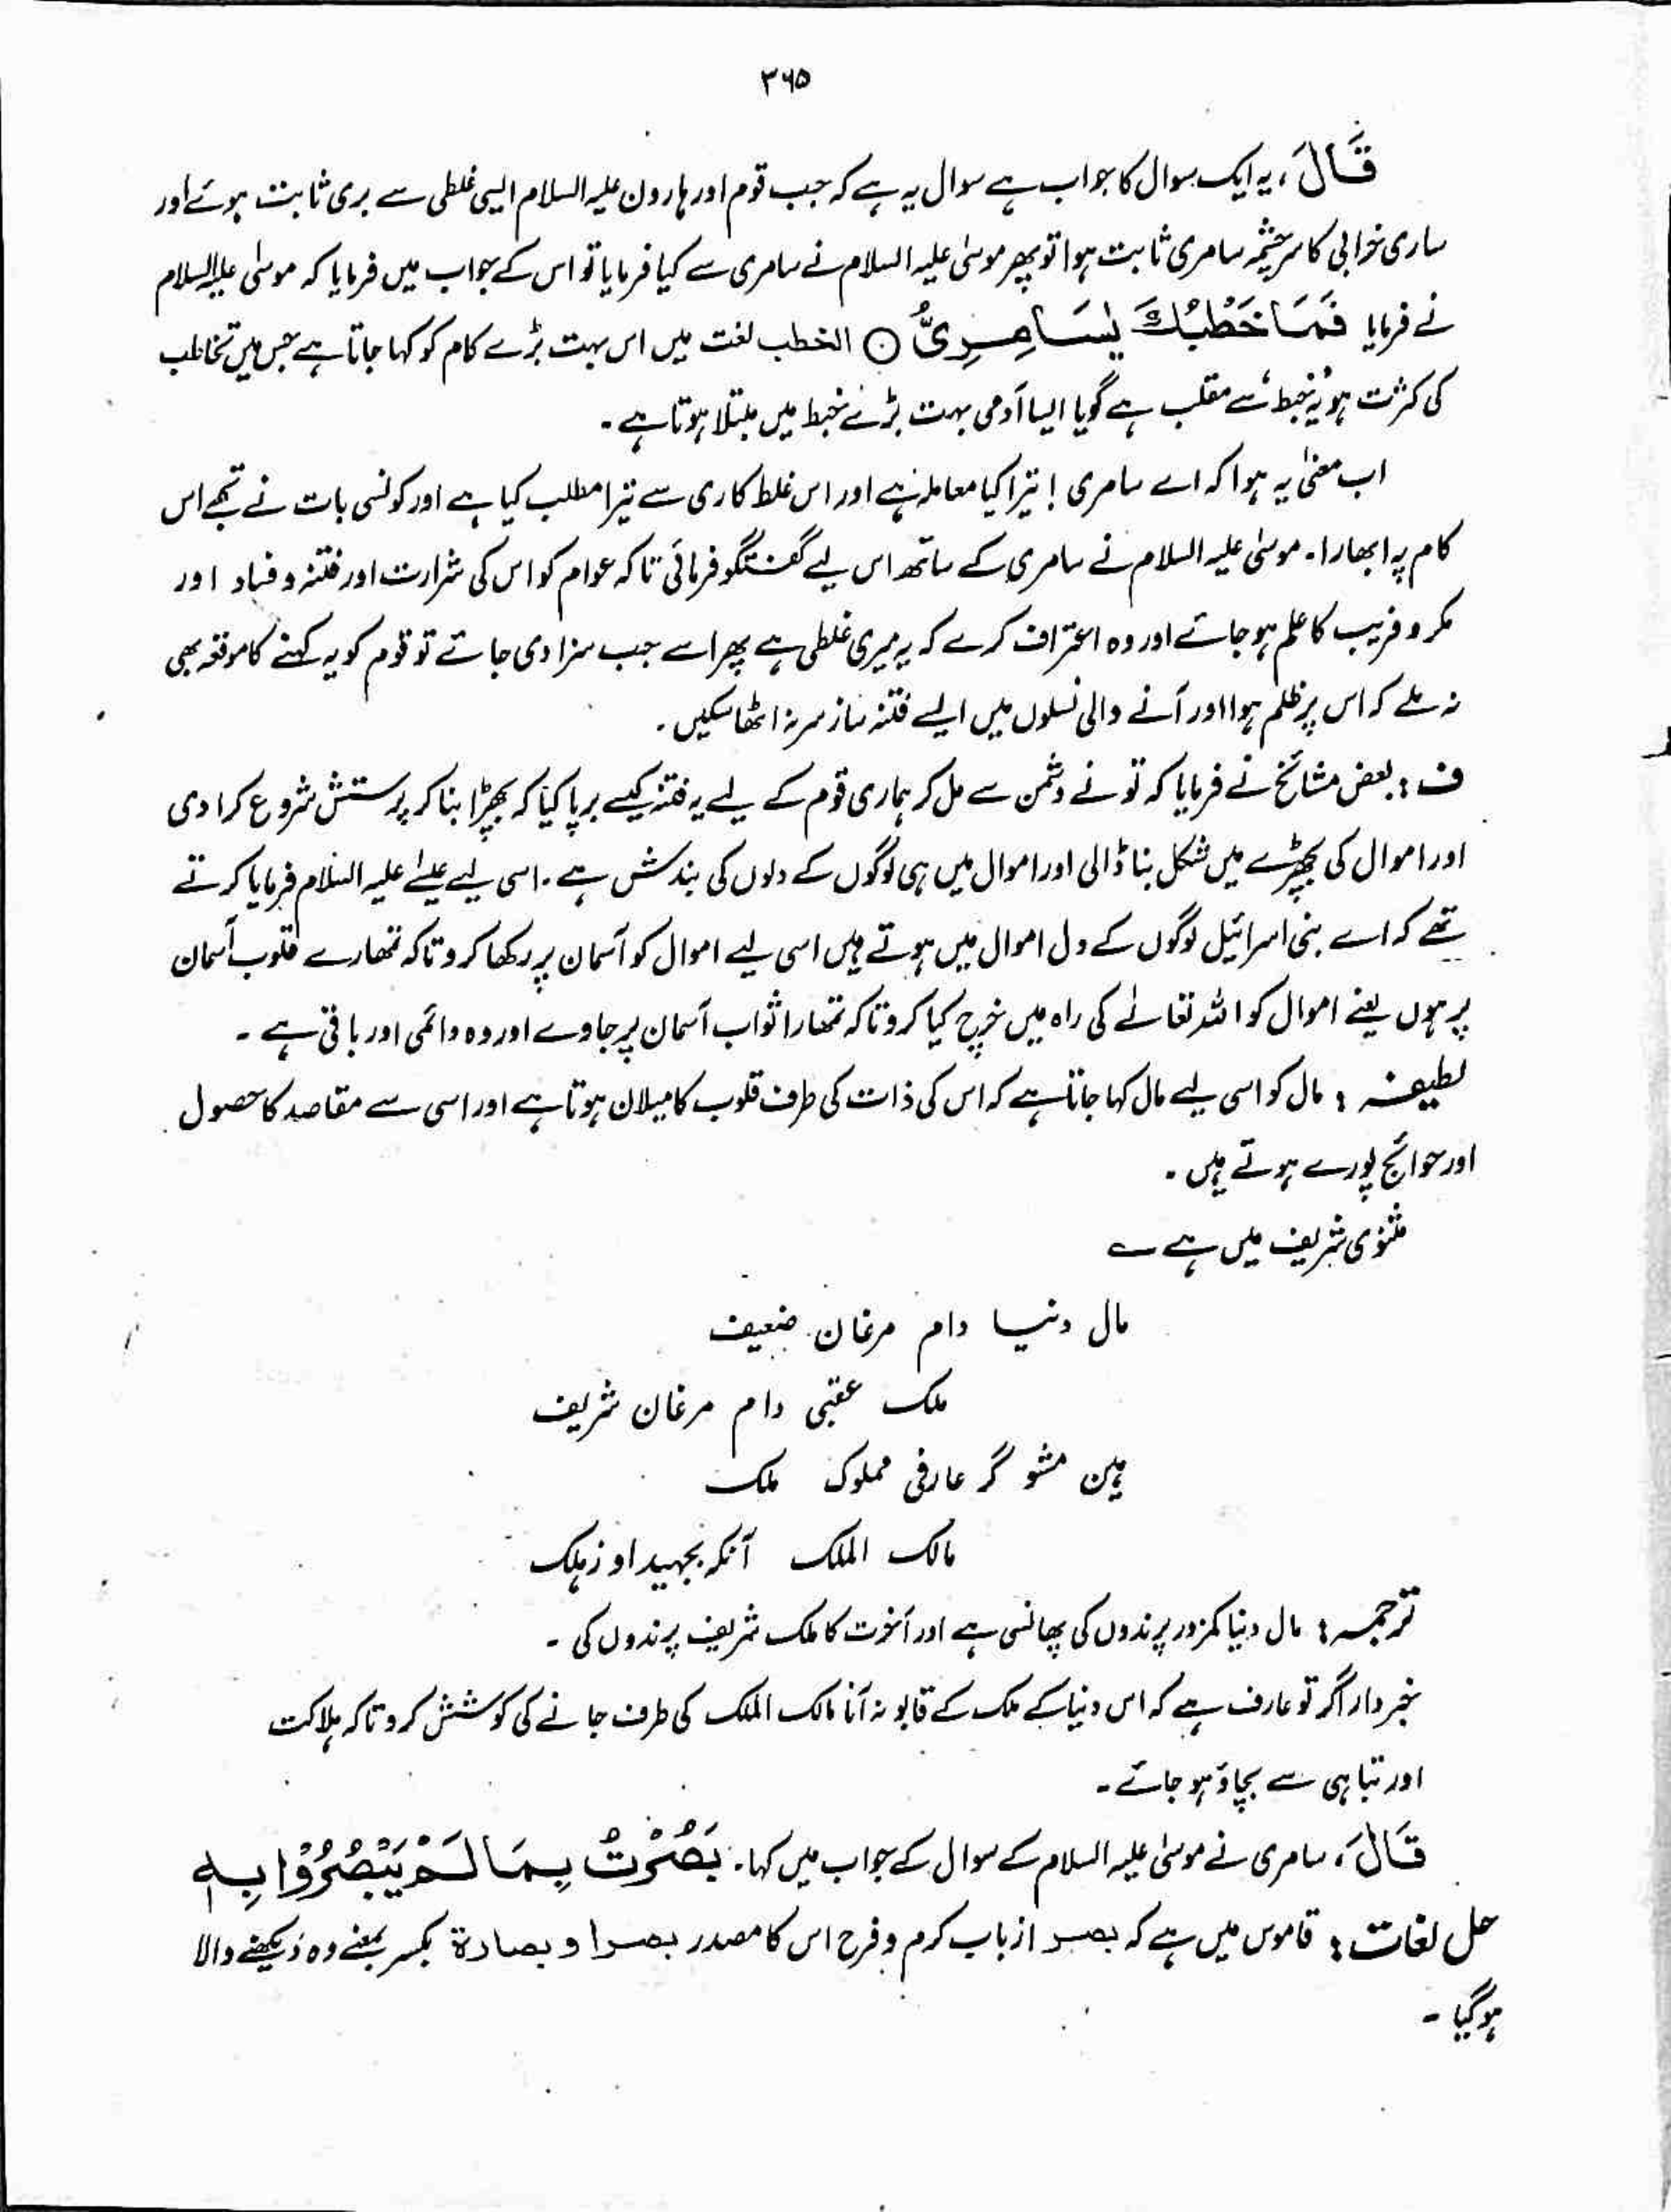 ۳۶۵
قَالَ، یہ ایک سوال کا جواب ہے سوال یہ ہے کہ جب قوم اور ہارون علیہ السلام ایسی غلطی سے بری ثابت ہوئے اور
ساری خرابی کا سرچشمہ سامری ثابت ہوا تو پھر موسیٰ علیہ السلام نے سامری سے کیا فرمایا تو اس کے جواب میں فرمایا کہ موسیٰ علیہ السلام
نے فرمایا فَمَا خَطْبُكَ يٰسَامِرِيُّ ○ الخطب لغت میں اس بہت بڑے کام کو کہا جاتا ہے جس میں تخاطب
کی کثرت ہو یہ خبط سے مقلب ہے گویا ایسا آدمی بہت بڑے خبط میں مبتلا ہوتا ہے۔
اب معنیٰ یہ ہوا کہ اے سامری! تیرا کیا معاملہ ہے اور اس غلط کاری سے تیرا مطلب کیا ہے اور کونسی بات نے تجھے اس
کام پہ ابھارا۔ موسیٰ علیہ السلام نے سامری کے ساتھ اس لیے گفتگو فرمائی تاکہ عوام کو اس کی شرارت اور فتنہ و فساد اور
مکر و فریب کا علم ہو جائے اور وہ اعتراف کرے کہ یہ میری غلطی ہے پھر اسے جب سزا دی جائے تو قوم کو یہ کہنے کا موقعہ بھی
نہ ملے کہ اس پر ظلم ہوا اور آنے والی نسلوں میں ایسے فتنہ ساز سر نہ اٹھا سکیں۔
ف: بعض مشائخ نے فرمایا کہ تو نے دشمن سے مل کر ہماری قوم کے لیے یہ فتنہ کیسے برپا کیا کہ بچھڑا بنا کر پرستش شروع کرا دی
اور اموال کی بچھڑے میں شکل بنا ڈالی اور اموال میں ہی لوگوں کے دلوں کی بندش ہے۔ اسی لیے عیسےٰ علیہ السلام فرمایا کرتے
تھے کہ اے بنی اسرائیل لوگوں کے دل اموال میں ہوتے ہیں اسی لیے اموال کو آسمان پر رکھا کرو تاکہ تمھارے قلوب آسمان
پر ہوں یعنے اموال کو اللہ تعالےٰ کی راہ میں خرچ کیا کرو تاکہ تمھارا ثواب آسمان پر جاوے اور وہ دائمی اور باقی ہے۔
لطیفہ: مال کو اسی لیے مال کہا جاتا ہے کہ اس کی ذات کی طرف قلوب کا میلان ہوتا ہے اور اسی سے مقاصد کا حصول
اور حوائج پورے ہوتے ہیں۔
مثنوی شریف میں ہے ؎
مال دنیا دام مرغان ضعیف
ملک عقبی دام مرغان شریف
ہین مشو گر عارفی مملوک ملک
مالک الملک آنکہ بجہید او زہلک
ترجمہ: مال دنیا کمزور پرندوں کی پھانسی ہے اور آخرت کا ملک شریف پرندوں کی۔
خبردار اگر تو عارف ہے کہ اس دنیا کے ملک کے قابو نہ آنا مالک الملک کی طرف جانے کی کوشش کرو تاکہ ہلاکت
اور تباہی سے بچاؤ ہو جائے۔
قَالَ، سامری نے موسیٰ علیہ السلام کے سوال کے جواب میں کہا۔ بَصُرْتُ بِمَا لَمْ يَبْصُرُوْا بِهٖ
حل لغات: قاموس میں ہے کہ بصر از باب کرم و فرح اس کا مصدر بصرا و بصارۃ بکسر بمعنے وہ دیکھنے والا
ہو گیا۔